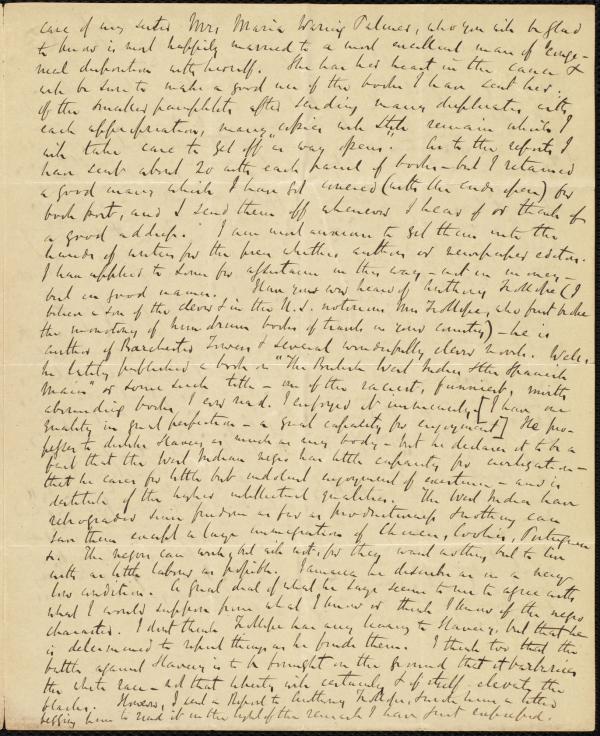 care of my sister Mrs Maria Waring Palmer, who you will be glad
to know is most happily married to a most excellent man of "conge-
nial disposition with herself. She has her heart in the cause &
will be sure to make a good use of the books I have sent her.
Of the smaller pamphlets after sending many duplicates with
each appropriation, many copies will still remain which I
will take care to get off "as way opens." As to the reports I
have sent about 20 with each parcel of books - but I retained
a good many which I have got covered (with the ends open) for
book post, and I send them off whenever I hear of or think of
a good address. I am most anxious to get them into the
hands of writers for the press whether authors or newspaper editors.
I have applied to some for assistance in this way - not in money -
but in good names. Have you ever heard of Anthony Trollope (I
believe a son of the clever & in the U.S. notorious Mrs Trollope, who first broke
the monotony of humdrum books of travels in your country) - he is
author of Barchester Towers & several wonderfully clever novels. Well,
he lately published a book on "The British West Indies & the Spanish
Main" or some such title - one of the raciest, funniest, mirth
abounding books I ever read. I enjoyed it immensely - [I have one
quality in great perfection - a great capacity for enjoyment] He pro-
fesses to dislike Slavery as much as any body - but he declares it to be a
fact that the West Indian negro has little capacity for civilization -
that he cares for little but indolent enjoyment of existence - and is
destitute of the higher intellectual qualities. The West Indies have
retrograded since freedom as far as productiveness & nothing can
save them except a large immigration of Chinese, Coolies, Portuguese
&c. The negroes can work, but will not, for they want nothing but to live
with as little labour as possible. Jamaica he describes as in a very
low condition. A great deal of what he says seems to me to agree with
what I would suppose from what I know or think I know of the negro
character. I don't think Trollope has any leaning to Slavery, but that he
is determined to report things as he finds them. I think too that the
battle against Slavery is to be fought on the ground that it barbarises
the white race - not that liberty will certainly & of itself elevate the
blacks. However, I sent a Report to Anthony Trollope, & wrote him a letter
begging him to read it in the light of the remark I have just expressed.